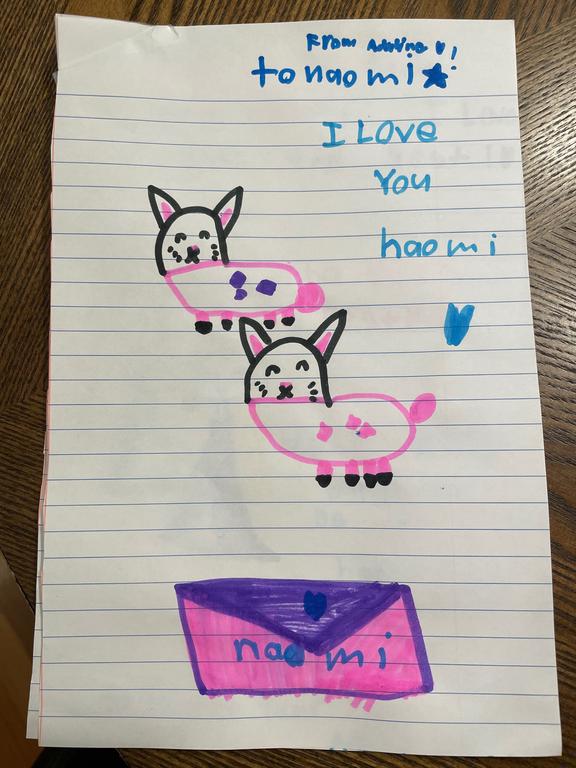 From Adalina
to naomi
I LOVE
You
naomi
naomi